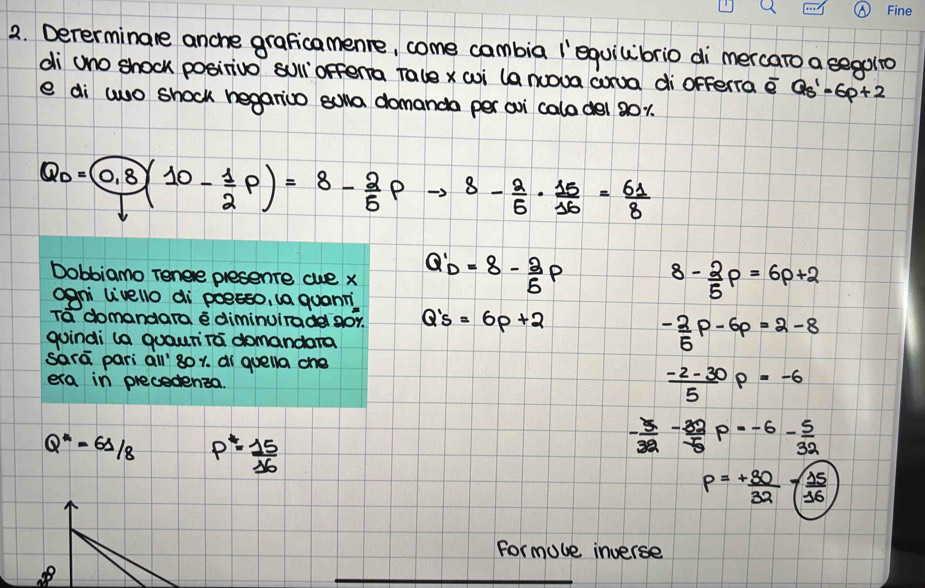 Fine
2. Determinare anche graficamente, come cambia l'equilibrio di mercato a seguito
di uno shock positivo sull'offerta tale x cui la nuova curva di offerta è Qs' = 6p+2
e di uno shock negativo sulla domanda per cui cala del 20%.
QD = 0,8 (10 - 1/2 P) = 8 - 2/5 P → 8 - 2/5 · 15/16 = 61/8
Dobbiamo tenere presente che x
ogni livello di prezzo, la quanti
tà domandata è diminuita del 20%.
quindi la quantità domandata
sarà pari all' 80% di quella che
era in precedenza.
Q'D = 8 - 2/5 P
Q's = 6p+2
8 - 2/5 P = 6p+2
-2/5 P - 6p = 2-8
-2-30/5 P = -6
-5/32 -32/5 P = -6 -5/32
P = +30/32 = 15/16
Q* = 61/8
P* = 15/16
Formule inverse